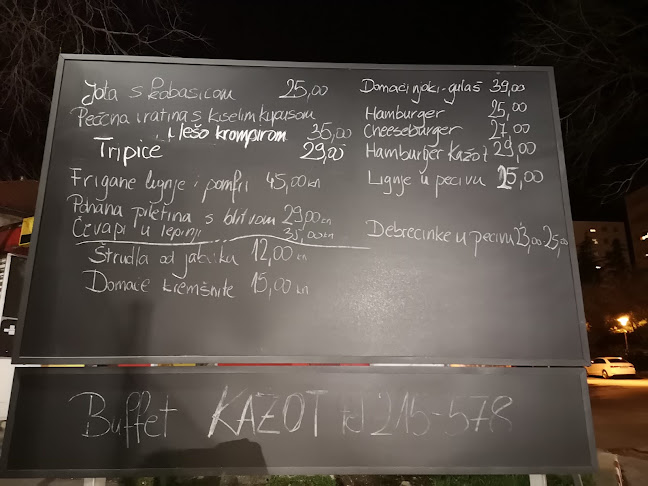 Jota s kobasicom 25,00
Pečena vratina s kiselim kupusom
i lešo krompirom 35,00
Tripice 29,00
Frigane lignje i pomfri 45,00 kn
Pohana piletina s blitvom 29,00 kn
Čevapi u lepinji 35,00 kn
Štrudla od jabuka 12,00 kn
Domaće kremšnite 15,00 kn
Domaći njoki-gulaš 39,00
Hamburger 25,00
Cheeseburger 27,00
Hamburger Kažot 29,00
Lignje u pecivu 25,00
Debrecinke u pecivu 23,00 25,00
Buffet KAŽOT tel 215-578